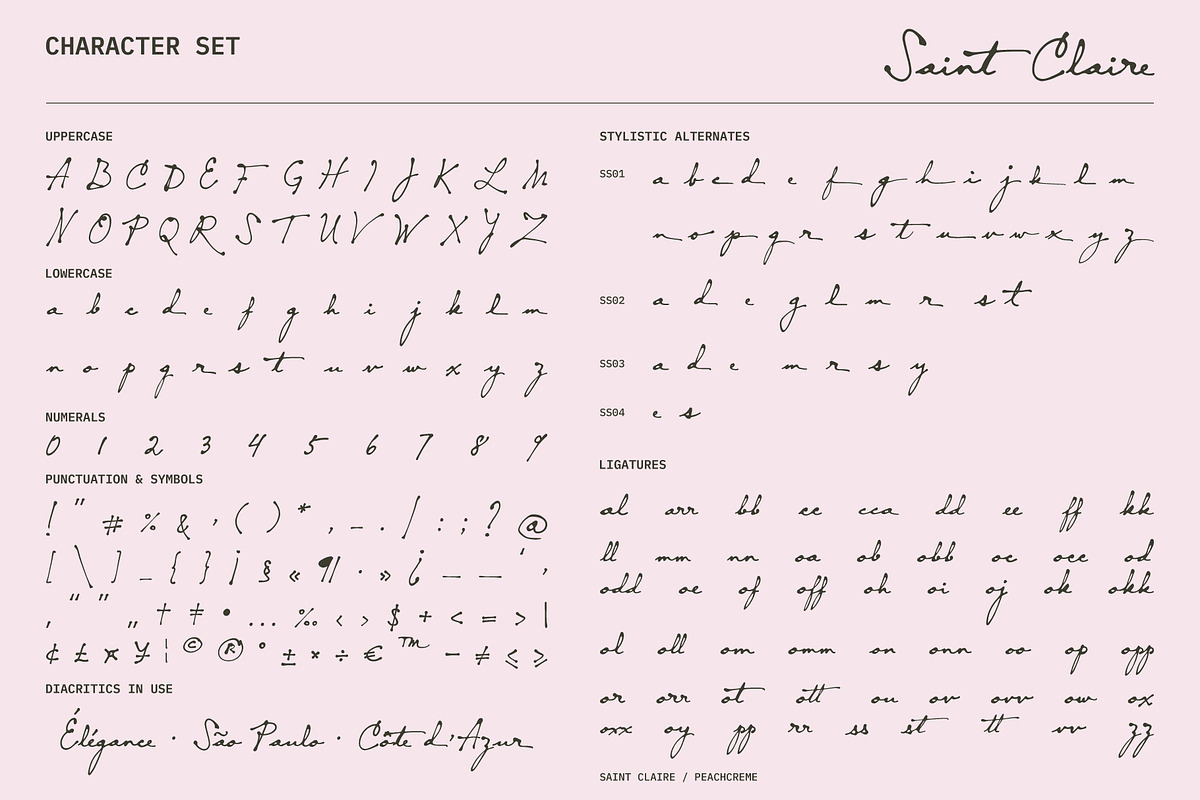 CHARACTER SET
Saint Claire
UPPERCASE
A B C D E F G H I J K L M
N O P Q R S T U V W X Y Z
LOWERCASE
a b c d e f g h i j k l m
n o p q r s t u v w x y z
NUMERALS
0 1 2 3 4 5 6 7 8 9
PUNCTUATION & SYMBOLS
! " # % & ' ( ) * , - . / : ; ? @
[ \ ] _ { } ¡ § « ¶ · » ¿ – — ‘ ’
‚ “ ” „ † ‡ • … ‰ ‹ › $ + < = > |
¢ £ ¤ ¥ ¦ © ® ° ± × ÷ € ™ − ≠ ≤ ≥
DIACRITICS IN USE
Élégance · São Paulo · Côte d'Azur
STYLISTIC ALTERNATES
SS01 a b c d e f g h i j k l m
n o p q r s t u v w x y z
SS02 a d e g l m r s t
SS03 a d e m r s y
SS04 e s
LIGATURES
al arr bb cc cca dd ee ff kk
ll mm nn oa ob obb oc occ od
odd oe of off oh oi oj ok okk
ol oll om omm on onn oo op opp
or orr ot ott ou ov ovv ow ox
oxx oy pp rr ss st tt vv zz
SAINT CLAIRE / PEACHCREME